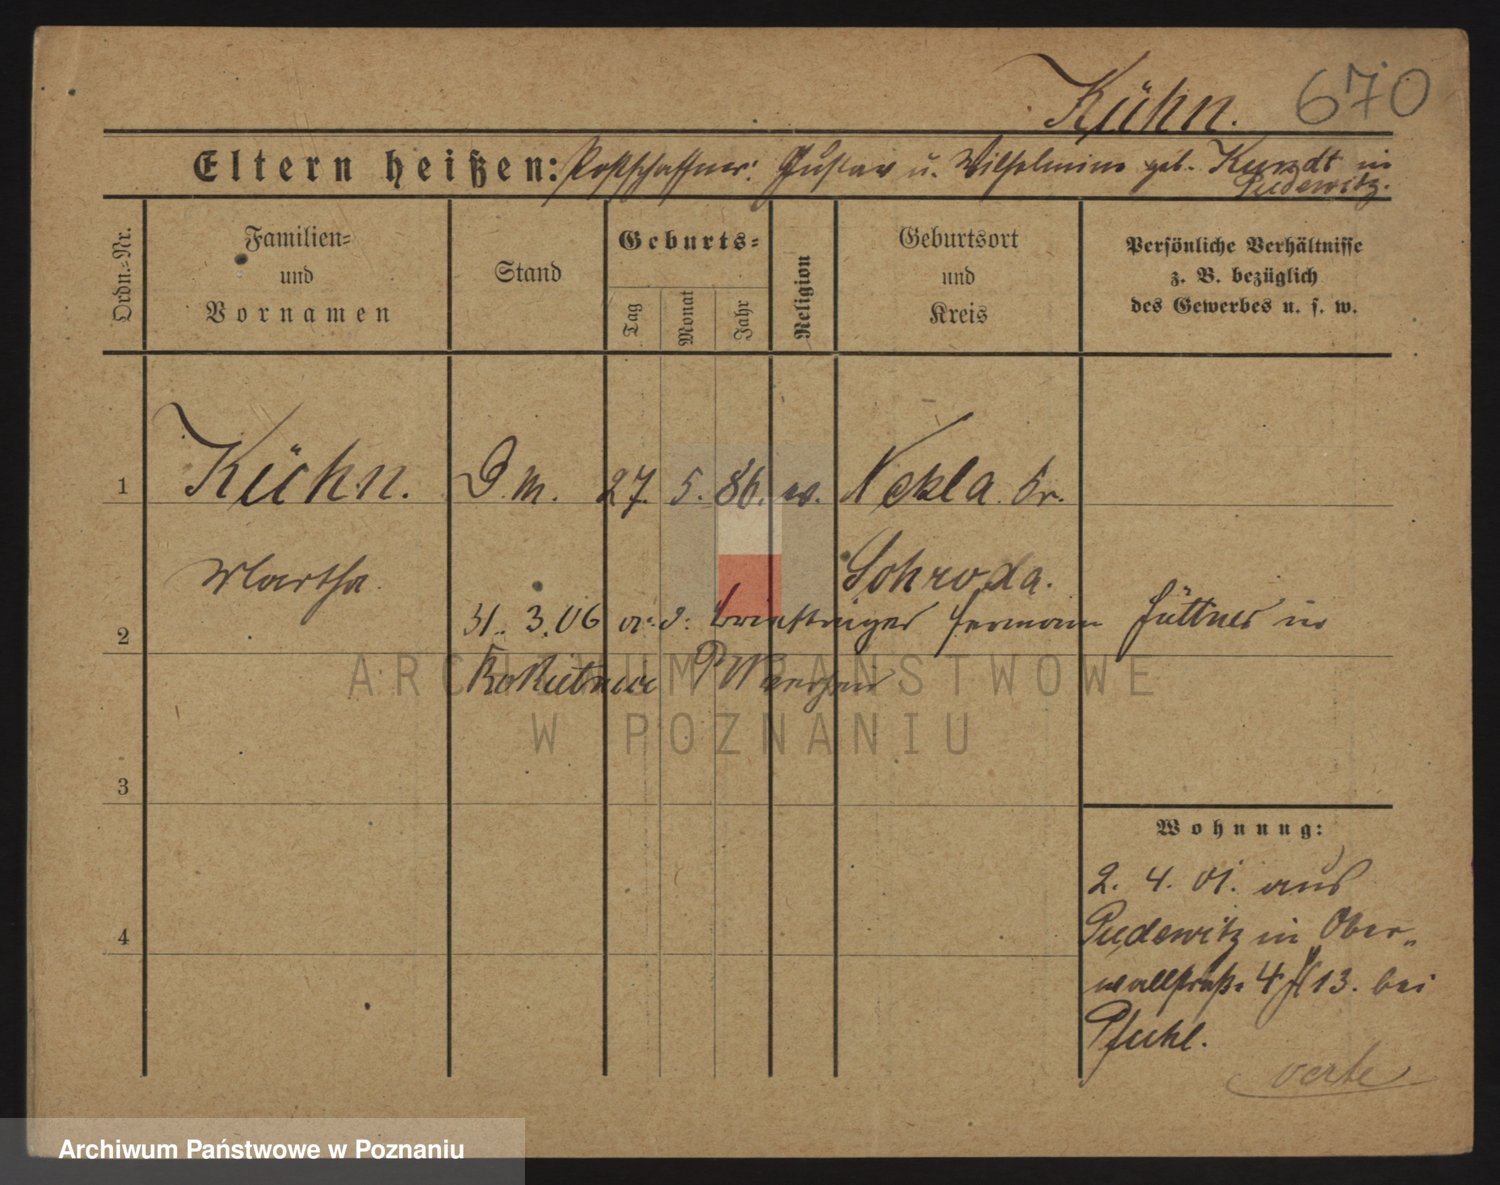 Kühn. 670
Eltern heißen: Postschaffner: Gustav u. Wilhelmine geb. Kundt in
Pudewitz.
Ordn.-Nr.
Familien-
und
Vornamen
Stand
Geburts-
Tag
Monat
Jahr
Religion
Geburtsort
und
Kreis
Persönliche Verhältnisse
z. B. bezüglich
des Gewerbes u. s. w.
1 Kühn. D.m. 27. 5. 86. ev. Nekla Kr.
Martha Schroda.
2 31. 3. 06 Briefträger Hermann Hüttner in
Rokietnice
3
4
Wohnung:
2. 4. 01. aus
Pudewitz in Ober-
wallstraße 4 13. bei
Pfuhl.
verte
ARCHIWUM PAŃSTWOWE
W POZNANIU
Archiwum Państwowe w Poznaniu